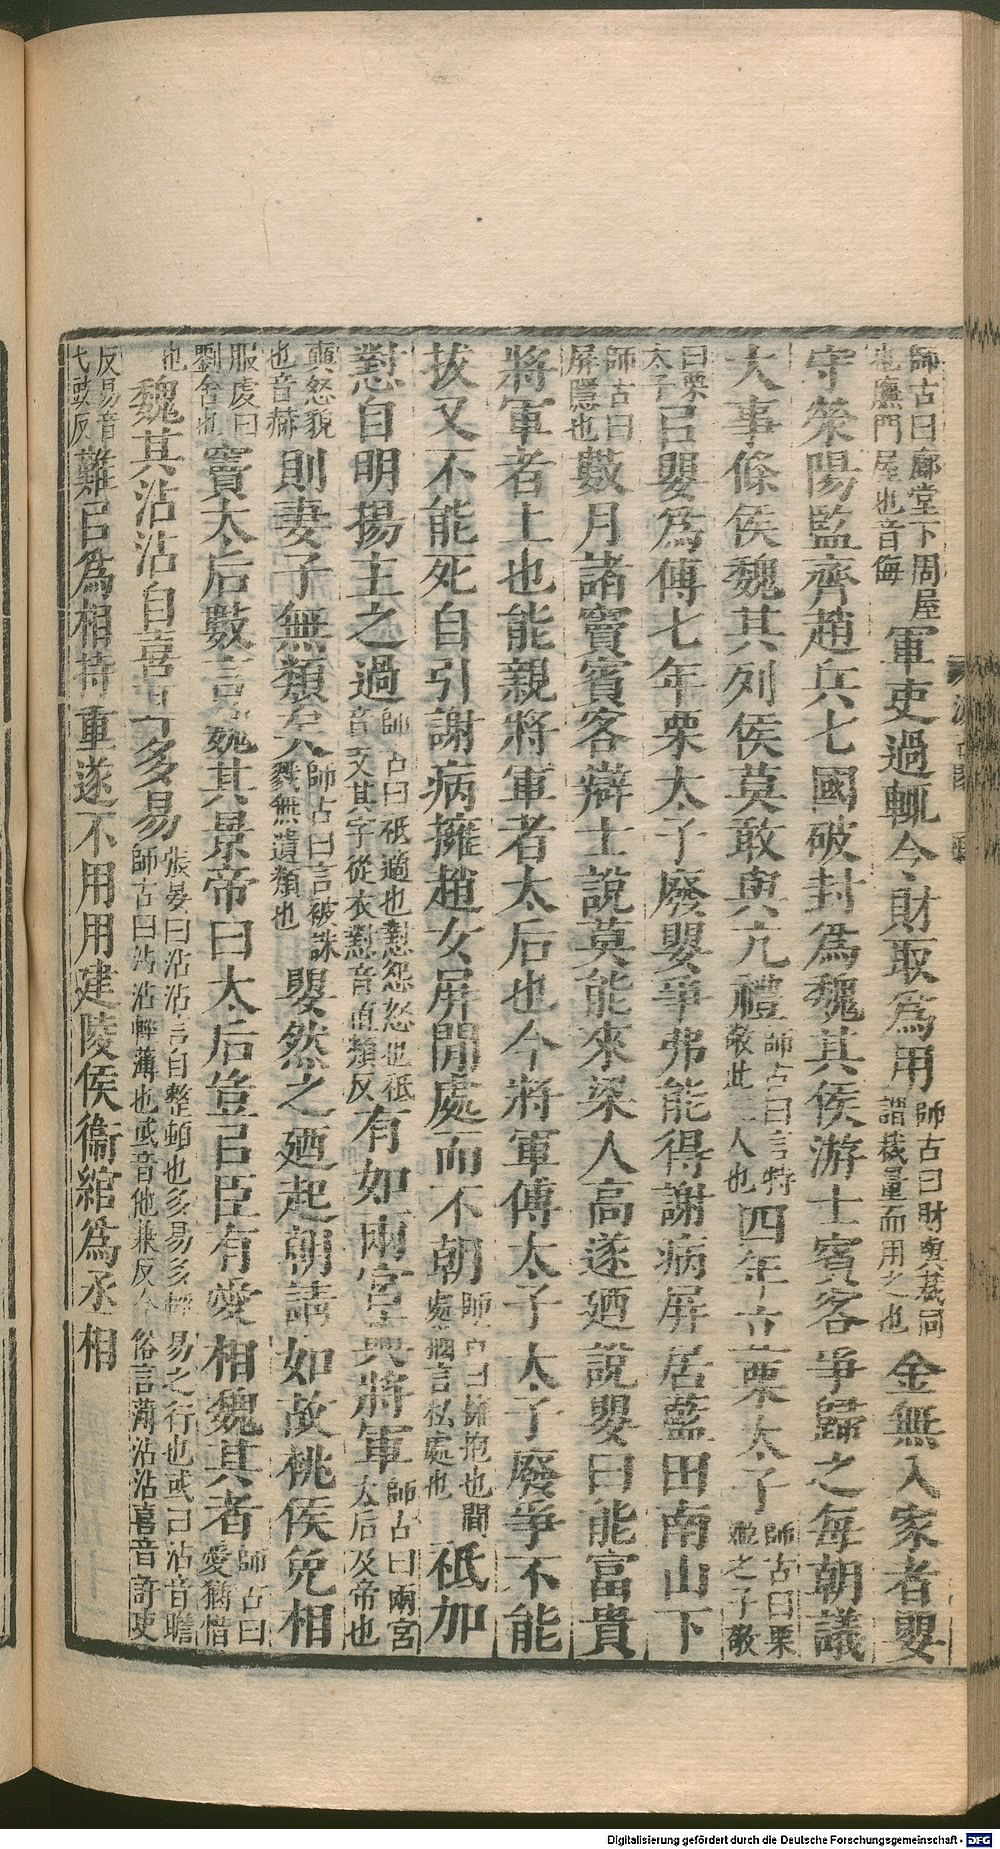 師古曰廊堂下周屋也廡門屋也音侮軍吏過輒令財取爲用師古曰財與裁同謂裁量而用之也金無入家者嬰
守滎陽監齊趙兵七國破封爲魏其侯游士賓客爭歸之每朝議
大事條侯魏其列侯莫敢與亢禮師古曰言特敬此二人也四年立栗太子師古曰栗姬之子故
曰栗太子㠯嬰爲傅七年栗太子廢嬰爭弗能得謝病屏居藍田南山下
師古曰屏隱也數月諸竇賓客辯士說莫能來梁人高遂廼說嬰曰能富貴
將軍者上也能親將軍者太后也今將軍傅太子太子廢爭不能
拔又不能死自引謝病擁趙女屏閒處而不朝師古曰擁抱也閒處猶言私處也祗加
懟自明揚主之過師古曰祗適也懟怨怒也祗音支其字從衣懟音直類反有如兩宮奭將軍師古曰兩宮太后及帝也
奭怒貌也音赫則妻子無類矣師古曰言被誅戮無遺類也嬰然之廼起朝請如故桃侯免相
服虔曰劉舍也竇太后數言魏其景帝曰太后豈㠯臣有愛相魏其者師古曰愛猶惜
也魏其沾沾自喜耳多易張晏曰沾沾言自整頓也多易多輕易之行也或曰沾音瞻師古曰沾沾輕薄也或音他兼反今俗言薄沾沾喜音許吏
反易音弋豉反難㠯爲相持重遂不用用建陵侯衞綰爲丞相
Digitalisierung gefördert durch die Deutsche Forschungsgemeinschaft - DFG